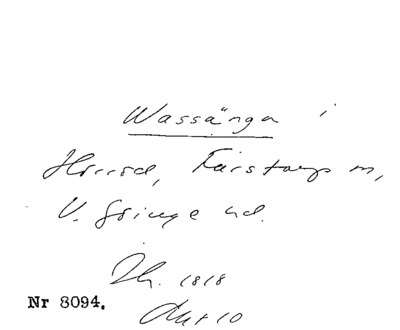 Wassänga i
Färstorps
V. Göinge hd.
1818
Nr 8094.
Akt 10